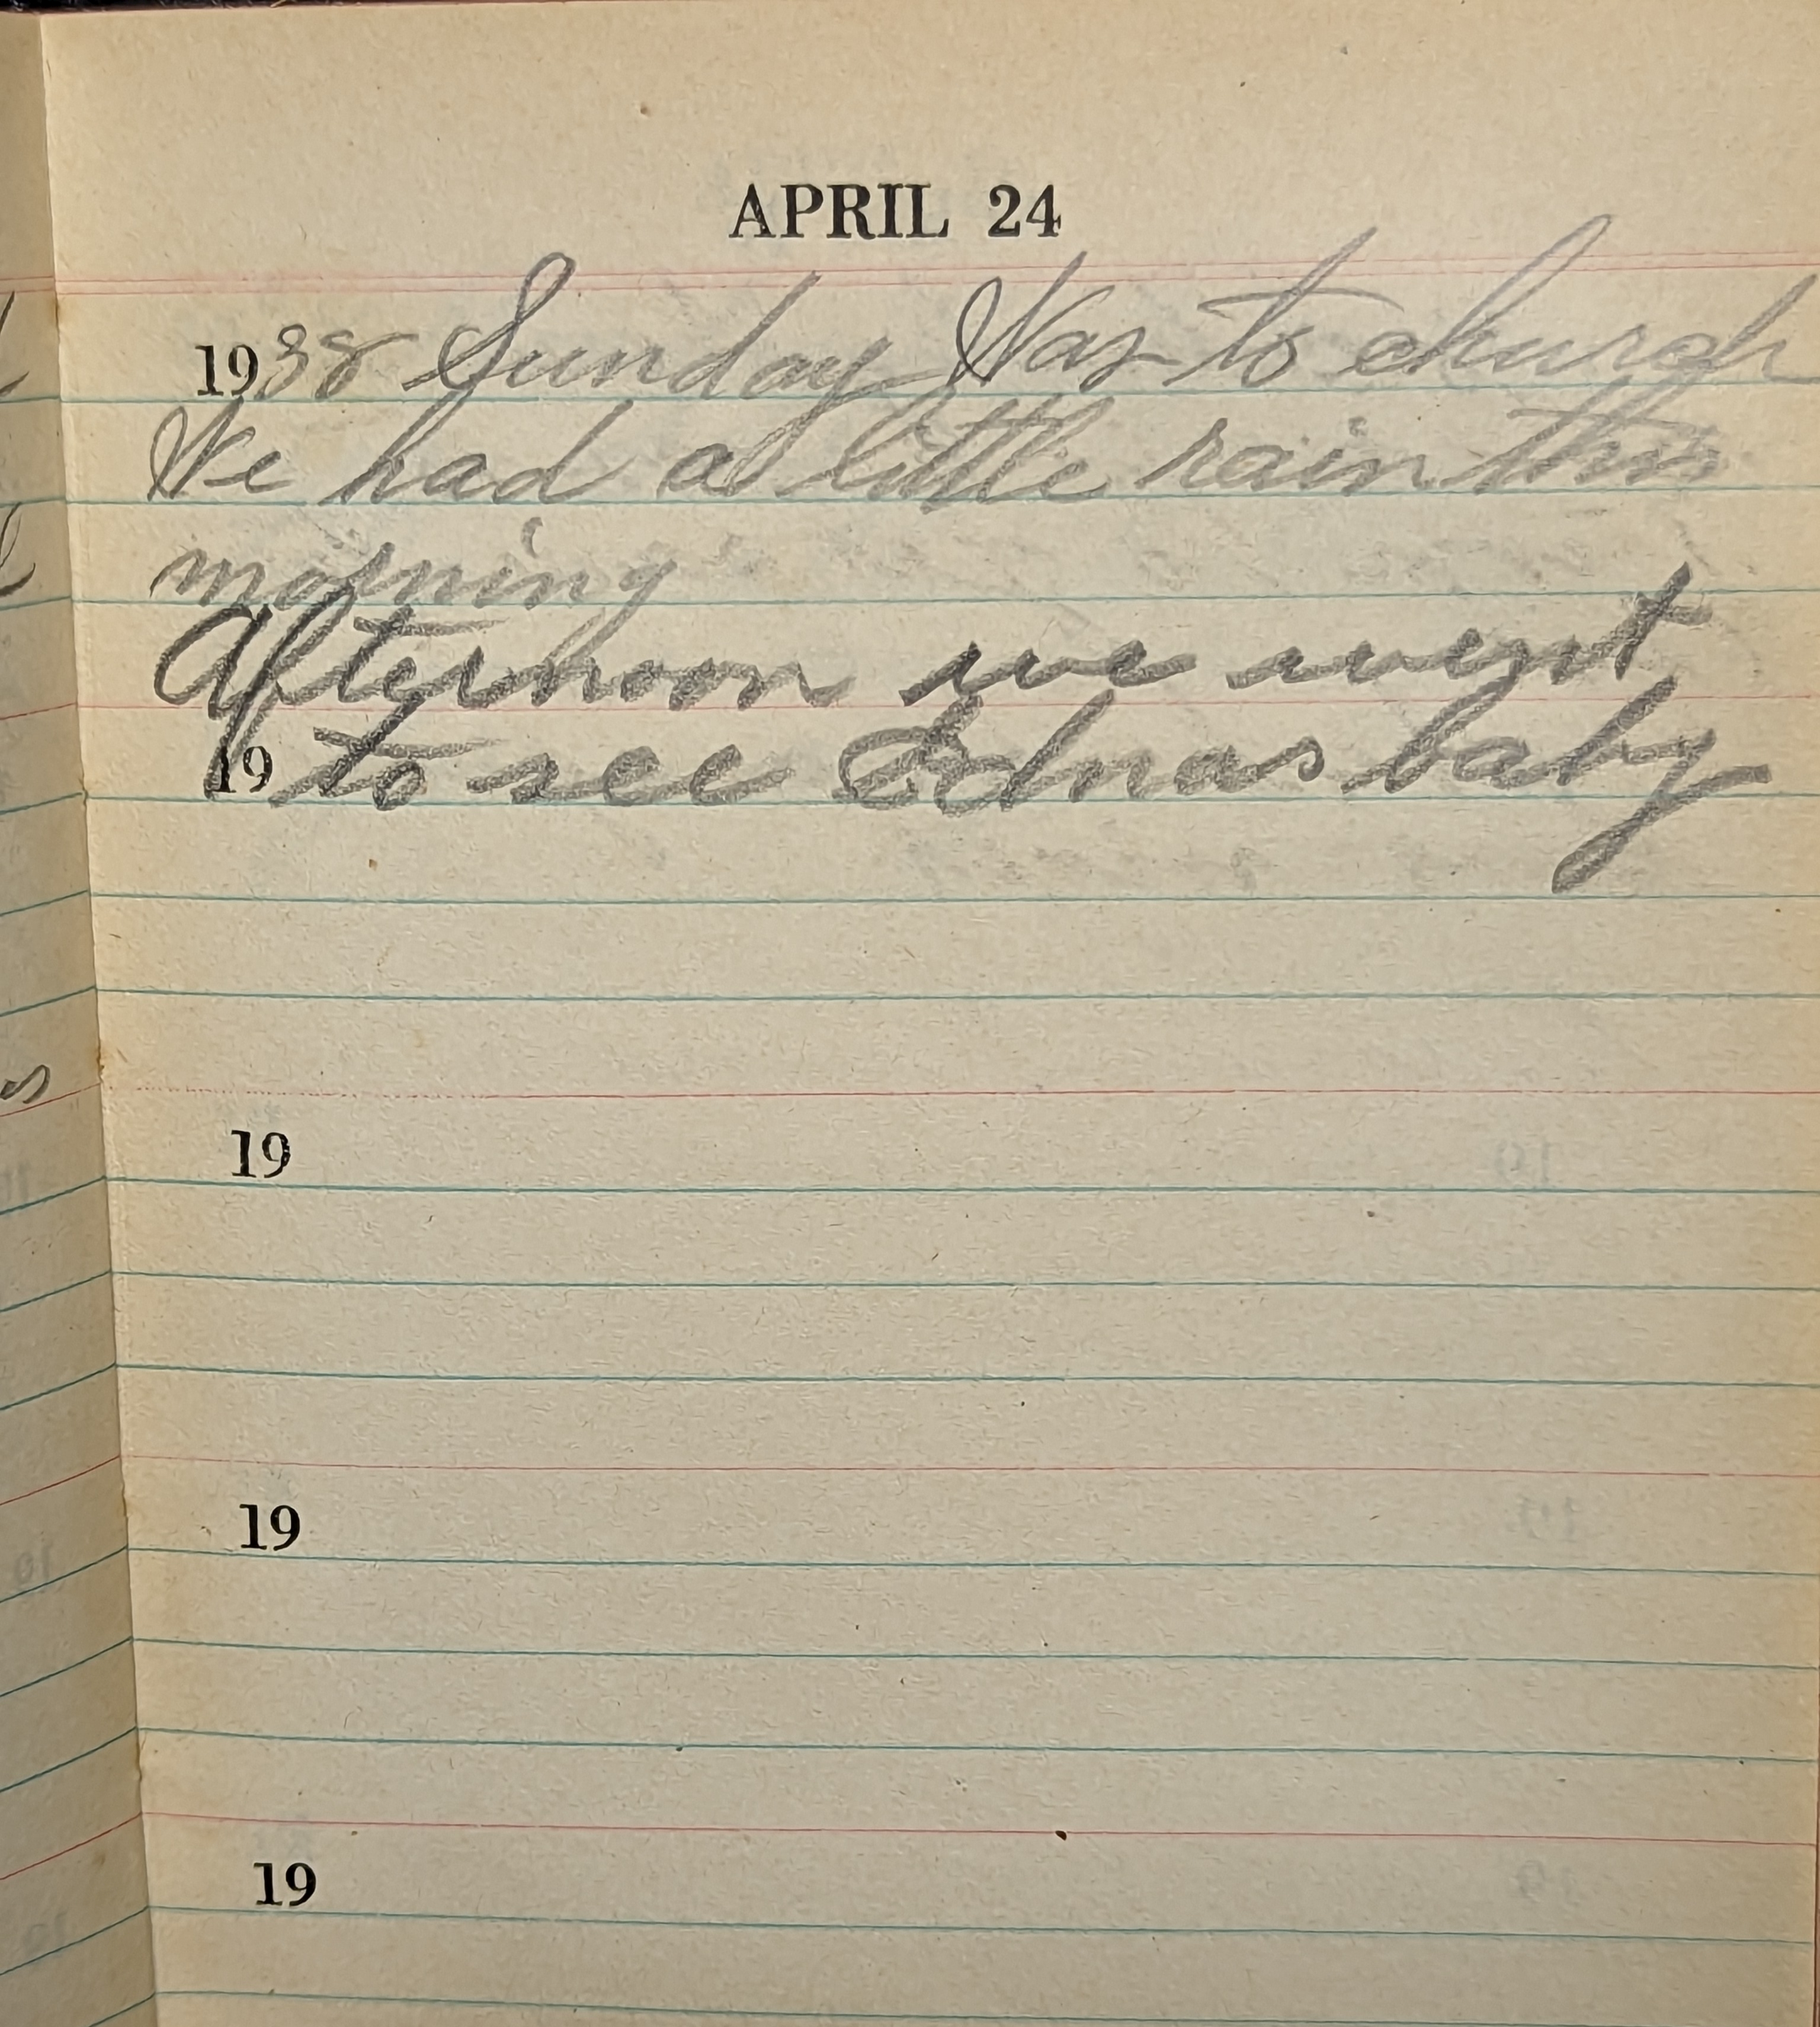 APRIL 24
1938 Sunday Was to church
We had a little rain this
morning
Afternoon we went
19 to see Ednas baby
19
19
19